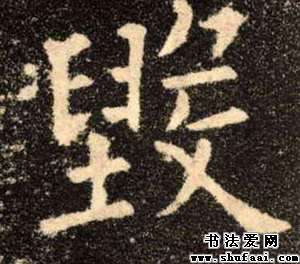 毀
书法爱网
www.shufaai.com